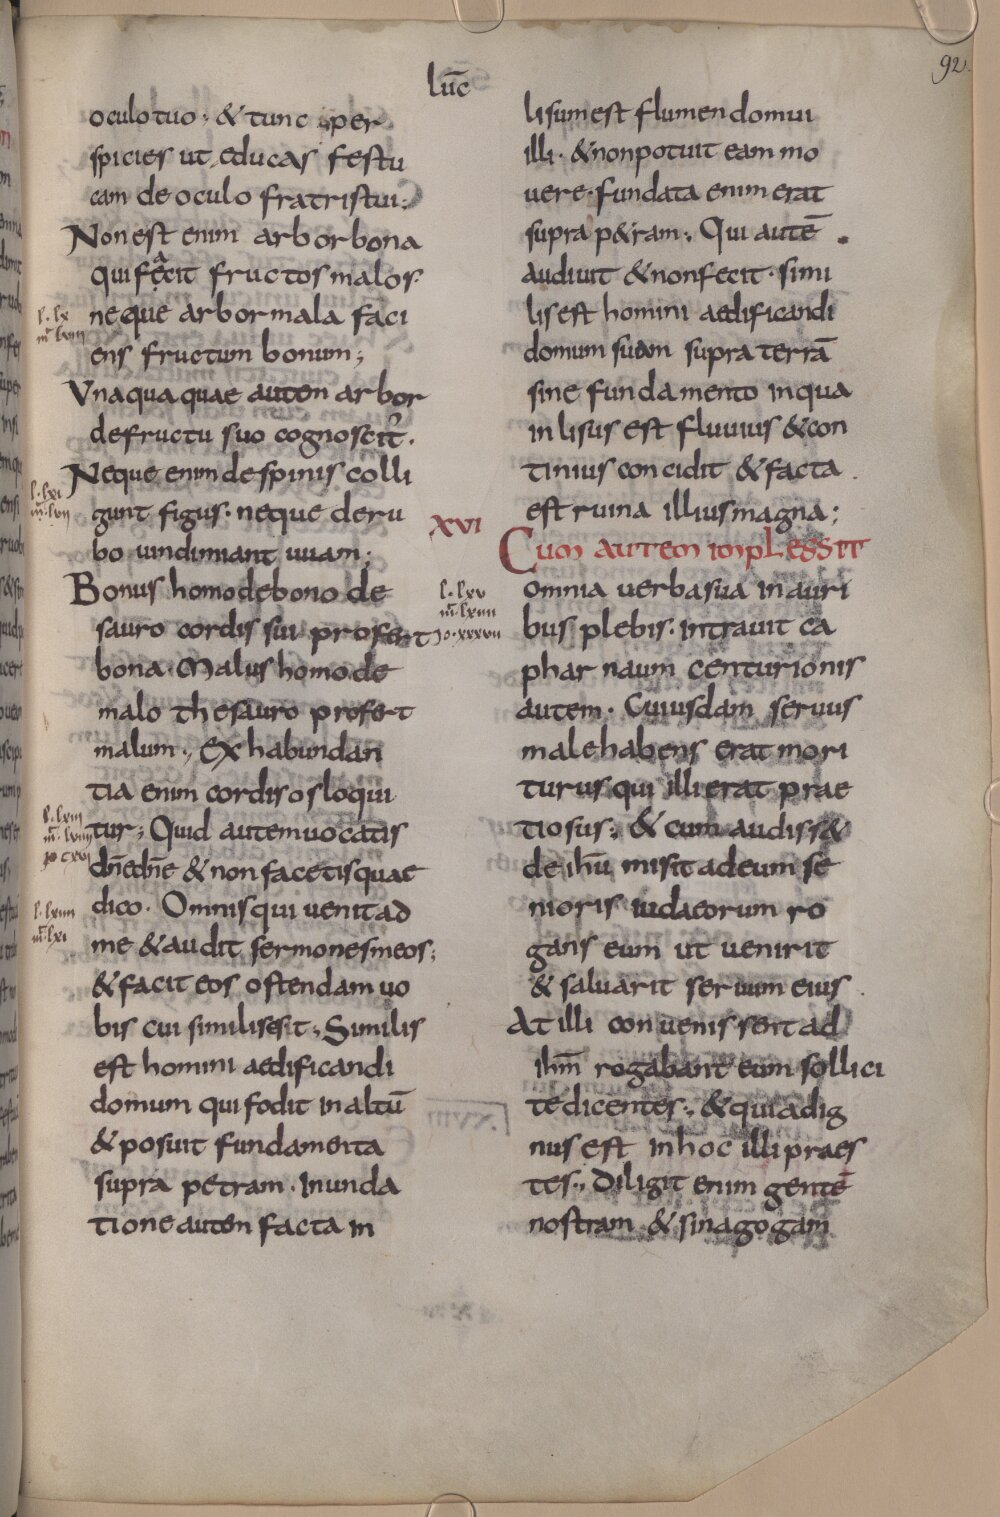 92.
lūc
oculo tuo; & tunc per
spicies ut educas festu
cam de oculo fratris tui;
Non est enim arbor bona
qui fecit fructos malos·
l·lx
neque arbor mala faci
m̄·lviii
ens fructum bonum;
Vnaquaquae autem arbor
de fructu suo cognoscit̄.
Neque enim de spinis colli
l·lxi
m̄·lvii
gunt figus· neque de ru
bo uindimiant uuam;
Bonus homo de bono de
sauro cordis sui profert
bona· Malus homo de
malo thesauro profert
malum·, Ex habundan
tia enim cordis os loqui
l·lxiii
tur; Quid autem uocatis
m̄·lviiii
io cxvi
dn̄e dn̄e & non facetis quae
l·lxiiii
dico· Omnis qui uenit ad
m̄·lxi
me & audit sermones meos;
& facit eos ostendam uo
bis cui similis esit·, Similis
est homini aedificandi
domum qui fodit in altū
& posuit fundamenta
supra petram· Inunda
tione autem facta in
lisum est flumen domui
illi· & non potuit eam mo
uere· fundata enim erat
supra p&ram·, Qui autē
audiuit & non fecit· simi
lis est homini aedificandi
domum suam supra terrā
sine fundamento in qua
inlisus est fluuius & con
tinius concidit & facta
est ruina illius magna;
XVI
Cum autem implessit
l·lxv
m̄·lxiiii
io·xxxvii
omnia uerba sua in auri
bus plebis· intrauit ca
pharnaum centurionis
autem· Cuiusdam seruus
male habens erat mori
turus qui illi erat prae
tiosus·, & cum audiss&
de ihū misit ad eum se
nioris iudaeorum ro
gans eum ut uenirit
& saluarit seruum eius
At illi conuenissent ad
ihm̄ rogabant eum sollici
te dicentes·, & quia dig
nus est in hoc illi praes
tes·, Diligit enim gentē
nostram & sinagogam